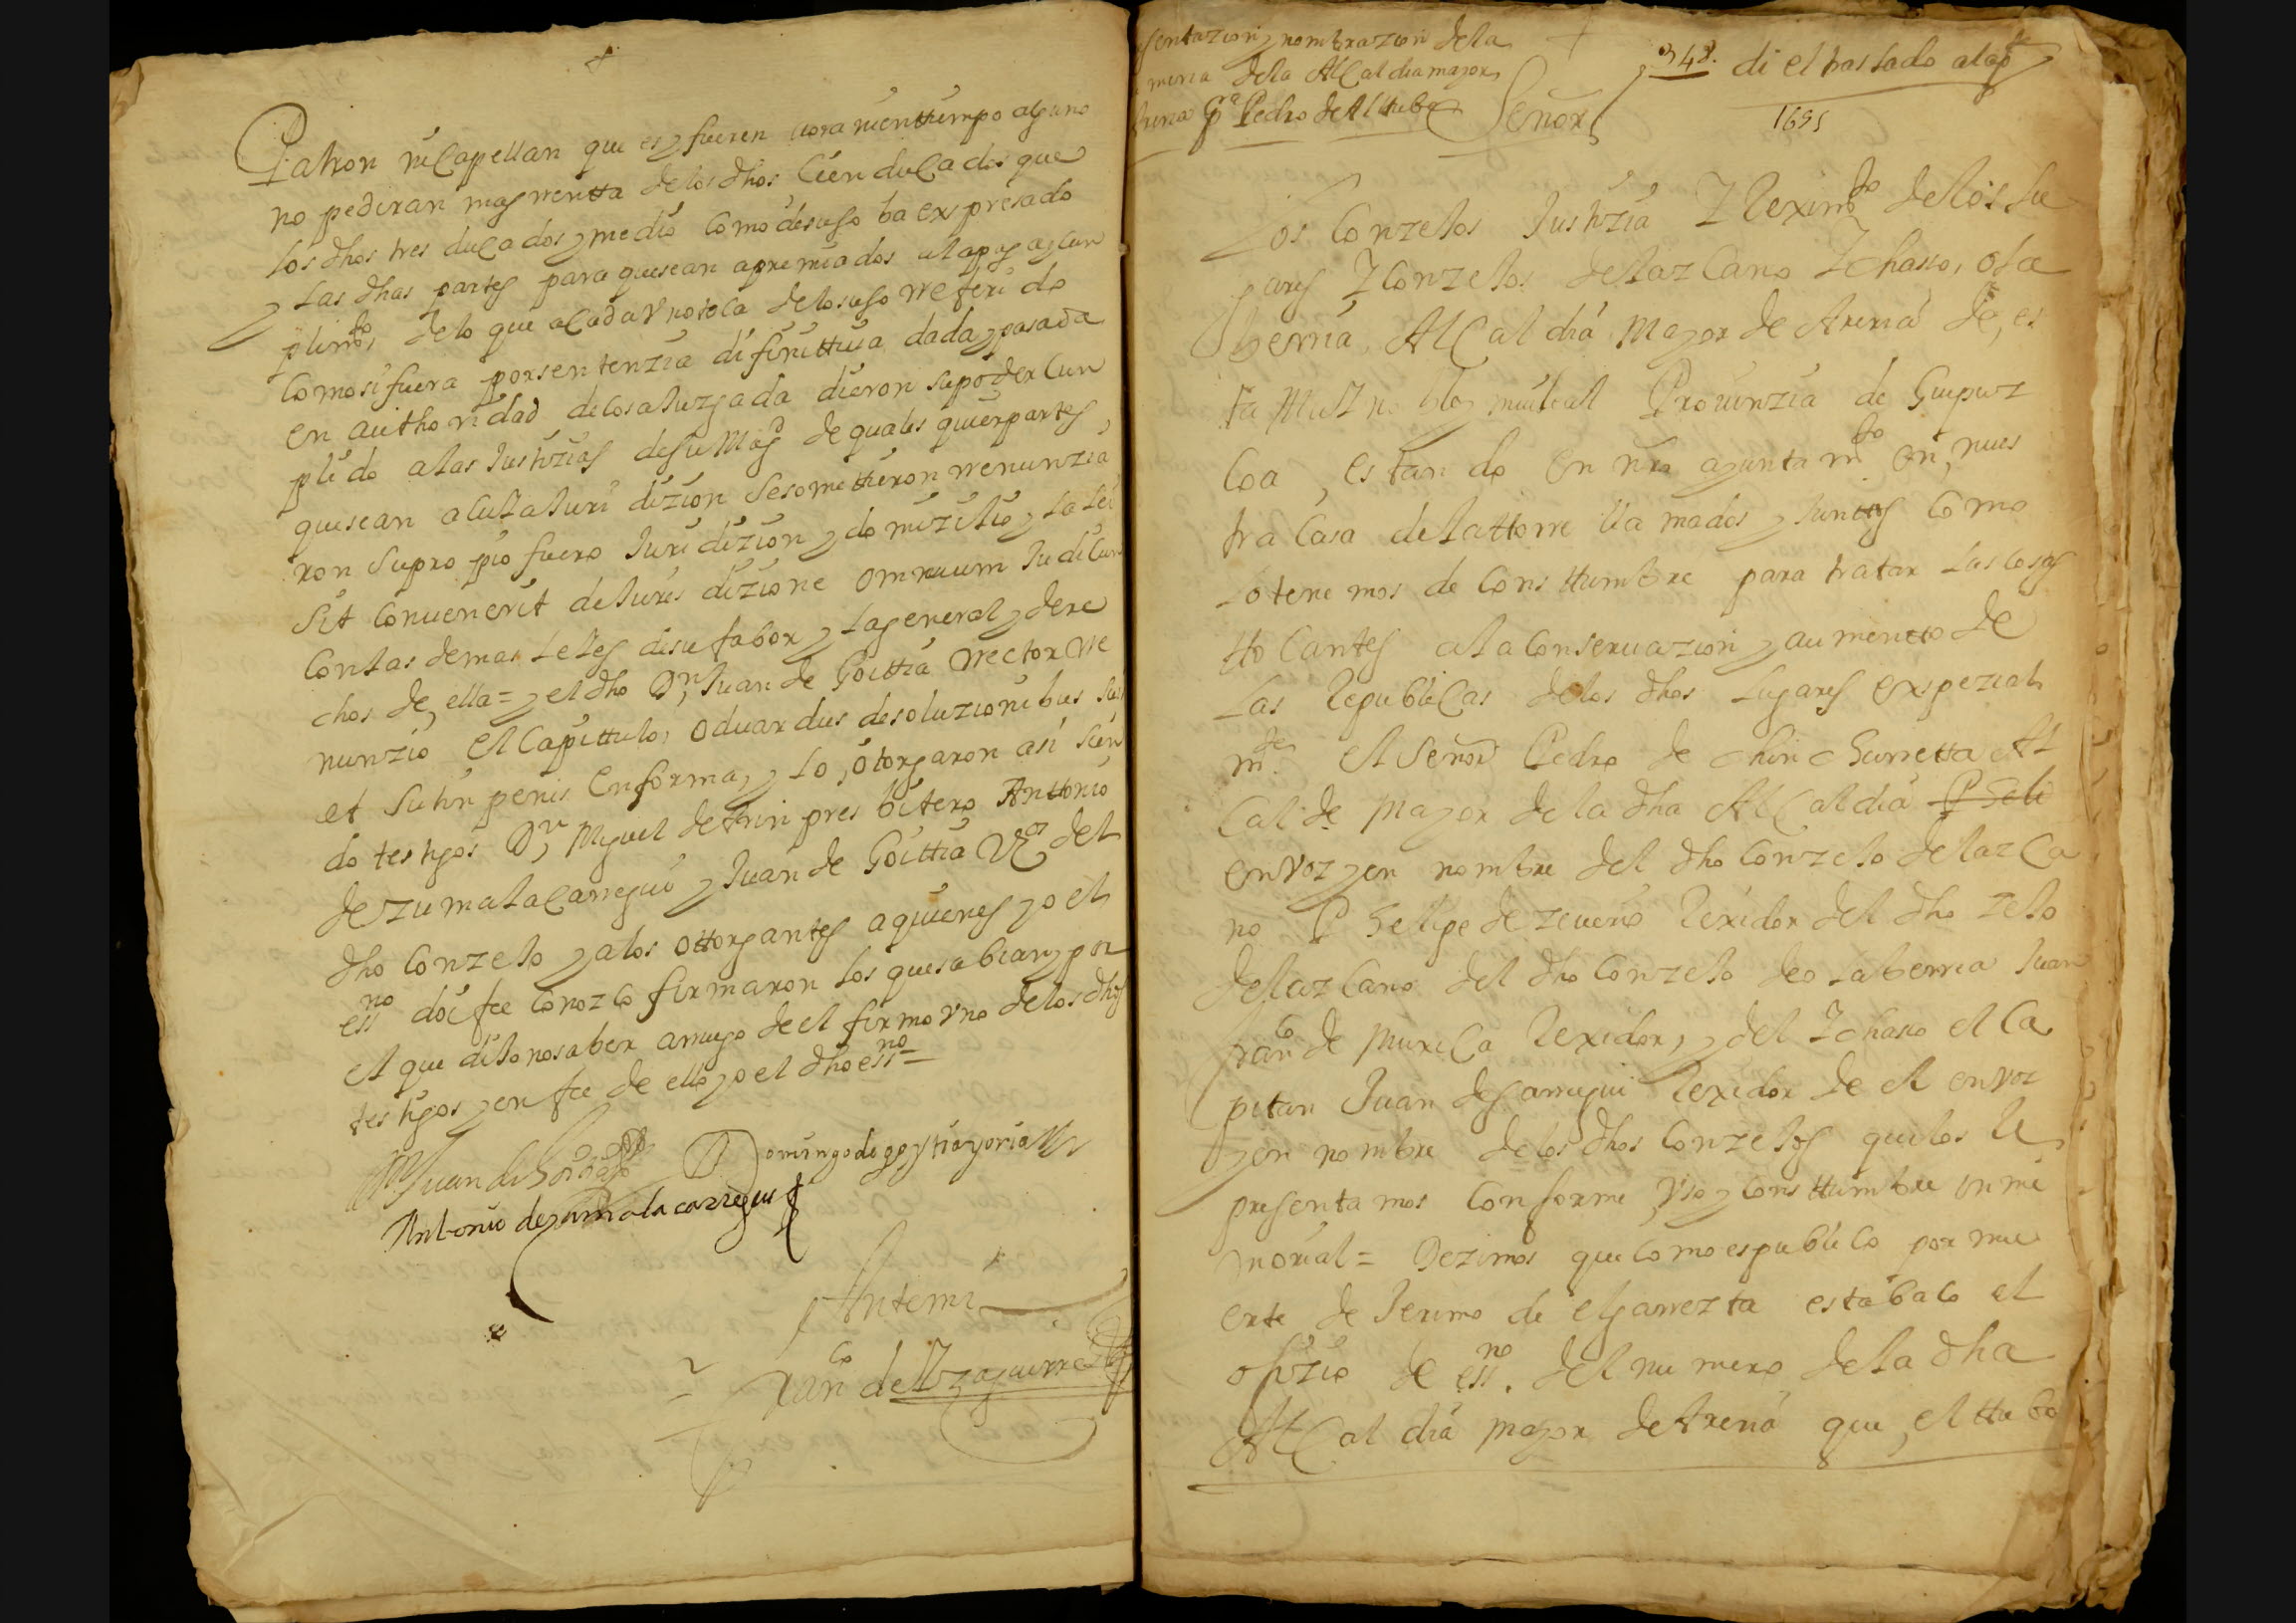 Patron ni Capellan que es, y fueren aora ni en ttiempo alguno
no pediran mas rentta de los dhos Cien duCados que
los dhos tres duCados y medio Como desuso ba expresado
y Las dhas partes para que sean apremiados a la paga y Cun
plimto, de lo que a Cada Vno toca de lo suso referido
Como si fuera por sentenzia difinittiua dada y pasada
en authoridad de Cosa Juzgada dieron su poder Cun
plido a las Justizias de su Magd de quales quier partes,
que sean a Cuia Juridizion se somettieron renunzia
ron su propio fuero Juridizion y domizilio y La Lei
sit Convenerit de Juris dizione omnium Judicun
Con las demas Leies de su fabor y La general y dere
chos de ella = y el dho Dn Juan de Goittia Rector re
nunzio el Capittulo, oduardus desoluzionibus sua
et suhn penis En forma, y Lo, otorgaron asi sien
do testigos Dn Miguel de Irin presbitero Anttonio
de zumalaCarregui y Juan de Goittia Vos del
dho Conzejo y a los ottorgantes a quienes yo el
essno doi fee Conozco firmaron los que sabian y por
el que dijo no saber a ruego de el firmo vno de los dhos
testigos y en fee de ello yo el dho essno =
Domingo de goytia y oria
Antonio de zumalacarregui
Ante mi
franco de Yzaguirre
sentazion y nombrazion de la
de la AlCaldia mayor
Pedro de Altube
Señor
348. di el traslado
1695
Los Conzejos Justizia I Reximto de los Lu
gares I Conzejos de lazCano Ichasso, ola
berria AlCaldia Mayor de Areria de, es
ta MuI noble y mui leal Prouinzia de Guipuz
Coa, estando en nro ayuntamto en, nues
tra Casa de la ttorre llamados y junttos Como
Lo tenemos de Consttumbre para tratar Las Cosas
ttoCantes a la Conseruazion y aumentto de
Las RepubliCas de los dhos Lugares expezial
mte. el Señor Pedro de chinchurretta Al
Calde mayor de la dha AlCaldia Pheli
en voz y en nombre del dho Conzejo de lazCa
no Phelipe de zeuerio Rexidor del dho zejo
de lazCano del dho Conzejo de olaberria Juan
franco de MuxiCa Rexidor, y del Ichasso el Ca
pitan Juan de Garregui Rexidor de el en voz
y en nombre de los dhos Conzejos que los Re
presentamos Conforme vso y Consttumbre inme
morial = Dezimos que Como es publiCo por mu
erte de Jeximo de elgarrezta estaba Co el
ofizio de essno. del numero de la dha
AlCaldia mayor de Areria que, el ttubo